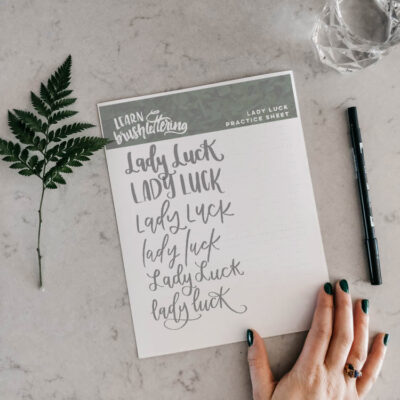 LEARN
brushlettering
LADY LUCK
PRACTICE SHEET
Lady Luck
LADY LUCK
Lady Luck
lady luck
Lady Luck
lady luck